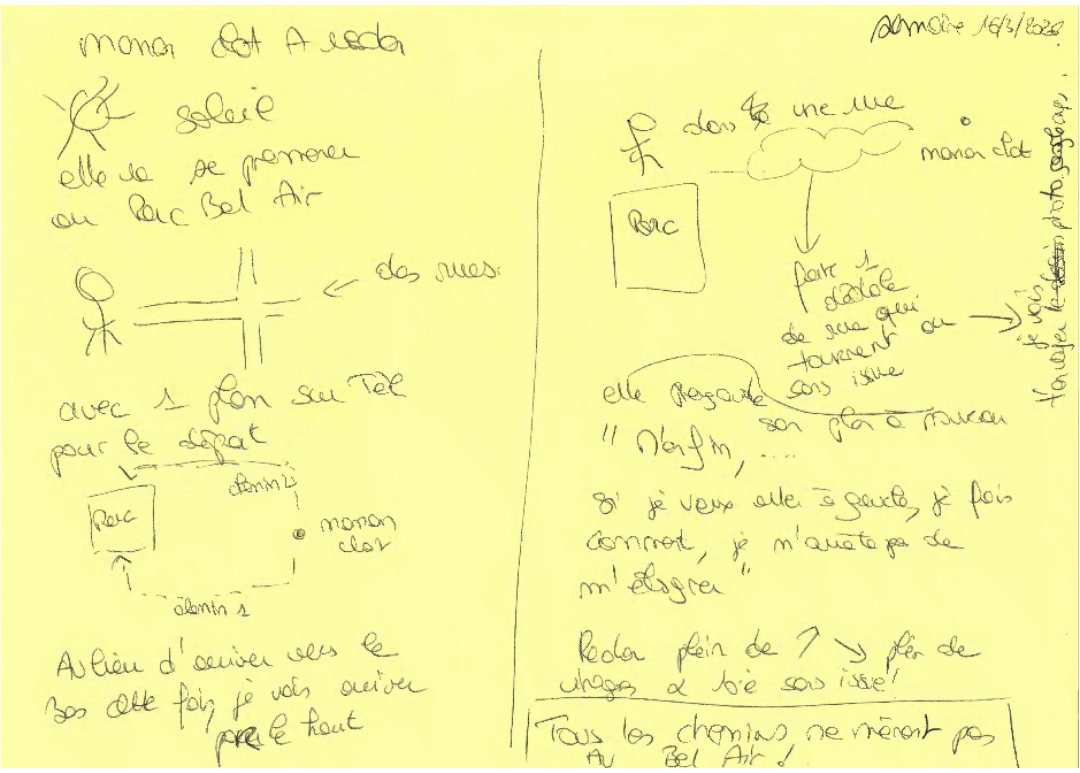 manon clot A rodon
soleil
elle va se promener
au Parc Bel Air
des rues.
avec 1 plan sur Tél
pour le départ
chemin 2
Parc
manon
clot
chemin 1
Au lieu d'arriver vers le
bas cette fois, je vais arriver
par le haut
16/3/2020
dans une rue
manon clot
Parc
1
dédale
de rue qui
tournent ou
sans issue
je vais
t'envoyer le photo
elle regarde
son plan à nouveau
" M'enfin, ....
Si je veux aller à gauche, je fais
comment, je n'arrête pas de
m'éloigner "
plein de ? ↘ plein de
virages & voie sans issue !
Tous les chemins ne mènent pas
Au Bel Air !